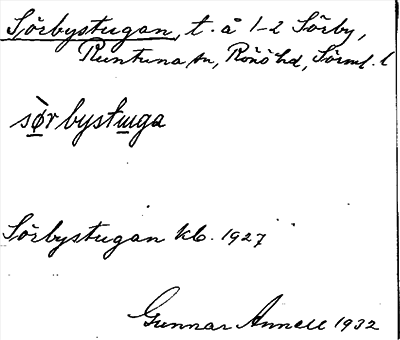 Sörbystugan, t. å 1-2 Sörby,
Runtuna sn, Rönö hd, Sörml. l
sø̀rbystɯga
Sörbystugan kb. 1927
Gunnar Annell 1932